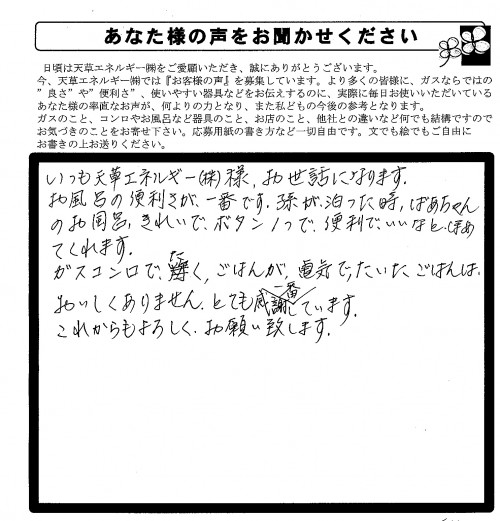 あなた様の声をお聞かせください
日頃は天草エネルギー㈱をご愛顧いただき、誠にありがとうございます。
今、天草エネルギー㈱では『お客様の声』を募集しています。より多くの皆様に、ガスならではの
”良さ”や”便利さ”、使いやすい器具などをお伝えするのに、実際に毎日お使いいただいている
あなた様の率直なお声が、何よりの力となり、また私どもの今後の参考となります。
ガスのこと、コンロやお風呂など器具のこと、お店のこと、他社との違いなど何でも結構ですので
お気づきのことをお寄せ下さい。応募用紙の書き方など一切自由です。文でも絵でもご自由に
お書きの上お送りください。
いつも天草エネルギー(株)様、お世話になります。
お風呂の便利さが、一番です。孫が泊った時、ばあちゃん
のお風呂、きれいで、ボタン1つで、便利で、いいなと、ほめ
てくれます。
ガスコンロで、たく、ごはんが、一番 電気で、たいた、ごはんは、
おいしくありません。とても感謝しています。
これからもよろしく、お願い致します。